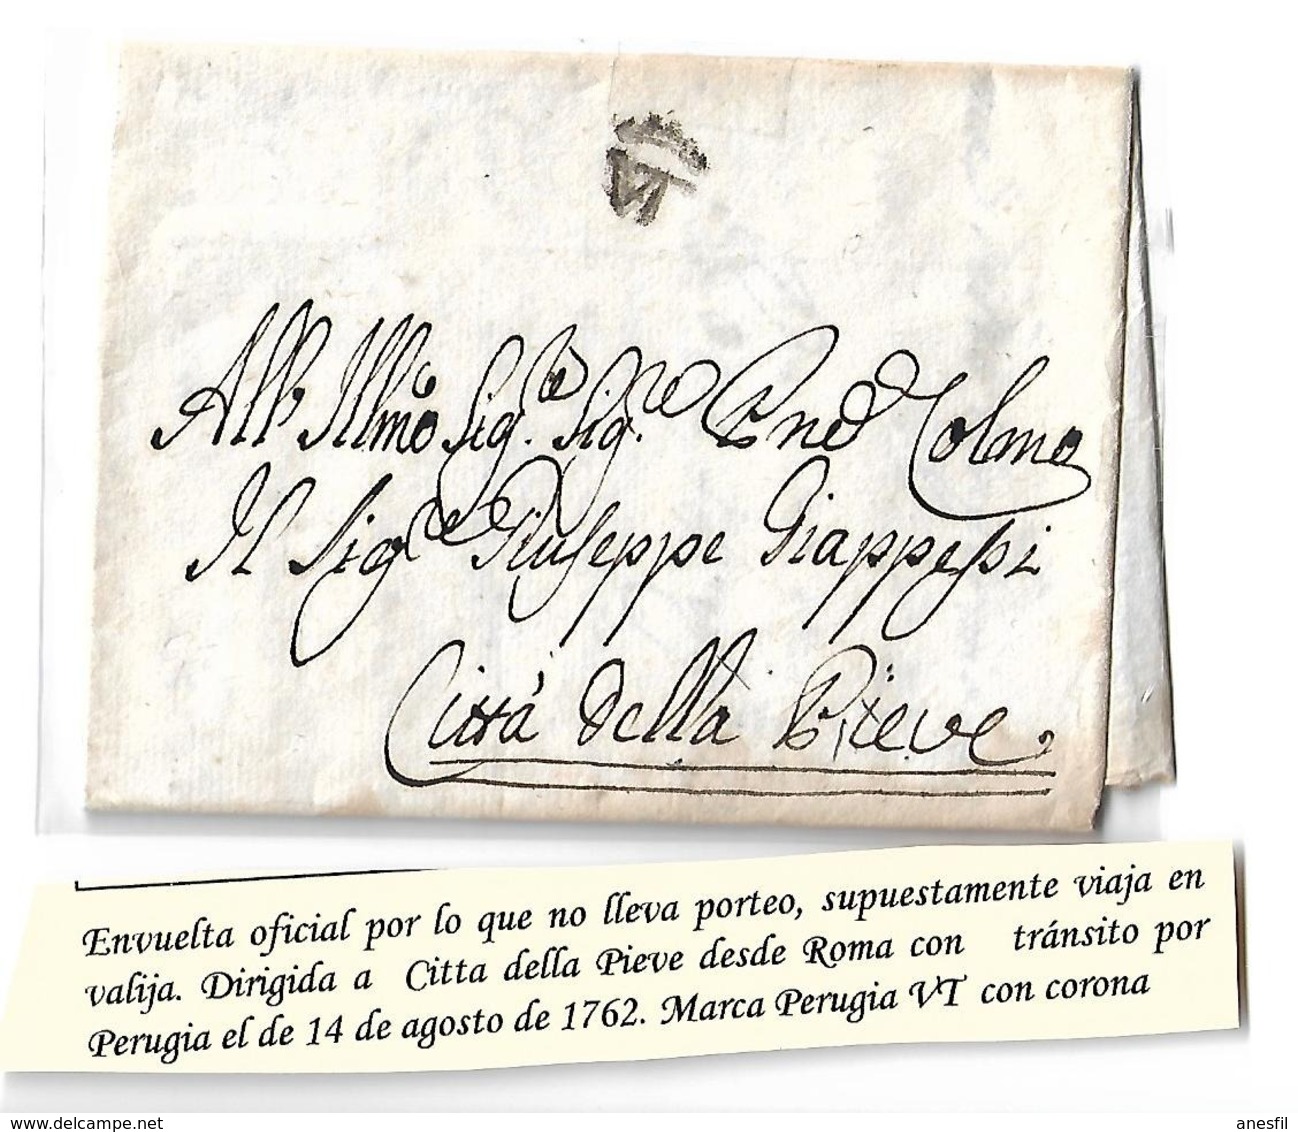 VT
All' Illmo Sig.re Sig.re Pne Colmo
Il Sig.re Giuseppe Giappessi
Città della Pieve.
Envuelta oficial por lo que no lleva porteo, supuestamente viaja en
valija. Dirigida a Citta della Pieve desde Roma con tránsito por
Perugia el de 14 de agosto de 1762. Marca Perugia VT con corona
www.delcampe.net
anesfil